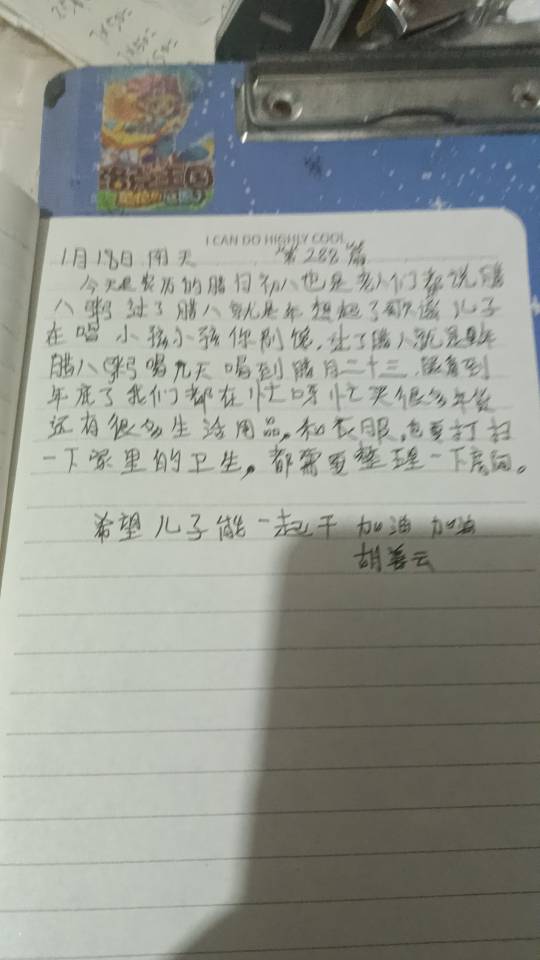 洛克王国
I CAN DO HIGHLY COOL
1月18日 雨天 第288篇
今天是农历的腊月初八也是老人们都说腊
八粥 过了腊八就是年 想起了歌谣 儿子
在唱 小孩小孩你别馋, 过了腊八就是年
腊八粥喝几天 喝到腊月二十三. 眼看到
年底了我们都在忙呀忙 买很多年货
还有很多生活用品, 和衣服, 也要打扫
一下家里的卫生, 都需要整理一下房间。
希望儿子能一起干 加油 加油